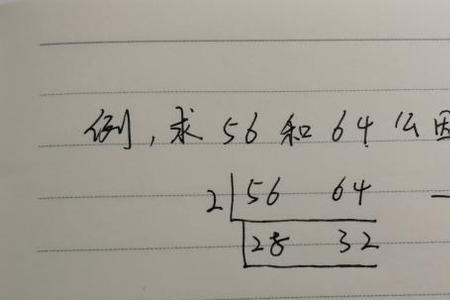 例,求56和64公因
2 56 64
28 32